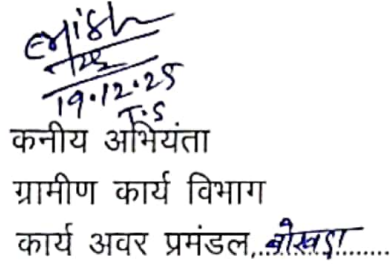 19.12.25
T.S
कनीय अभियंता
ग्रामीण कार्य विभाग
कार्य अवर प्रमंडल, बोखड़ा